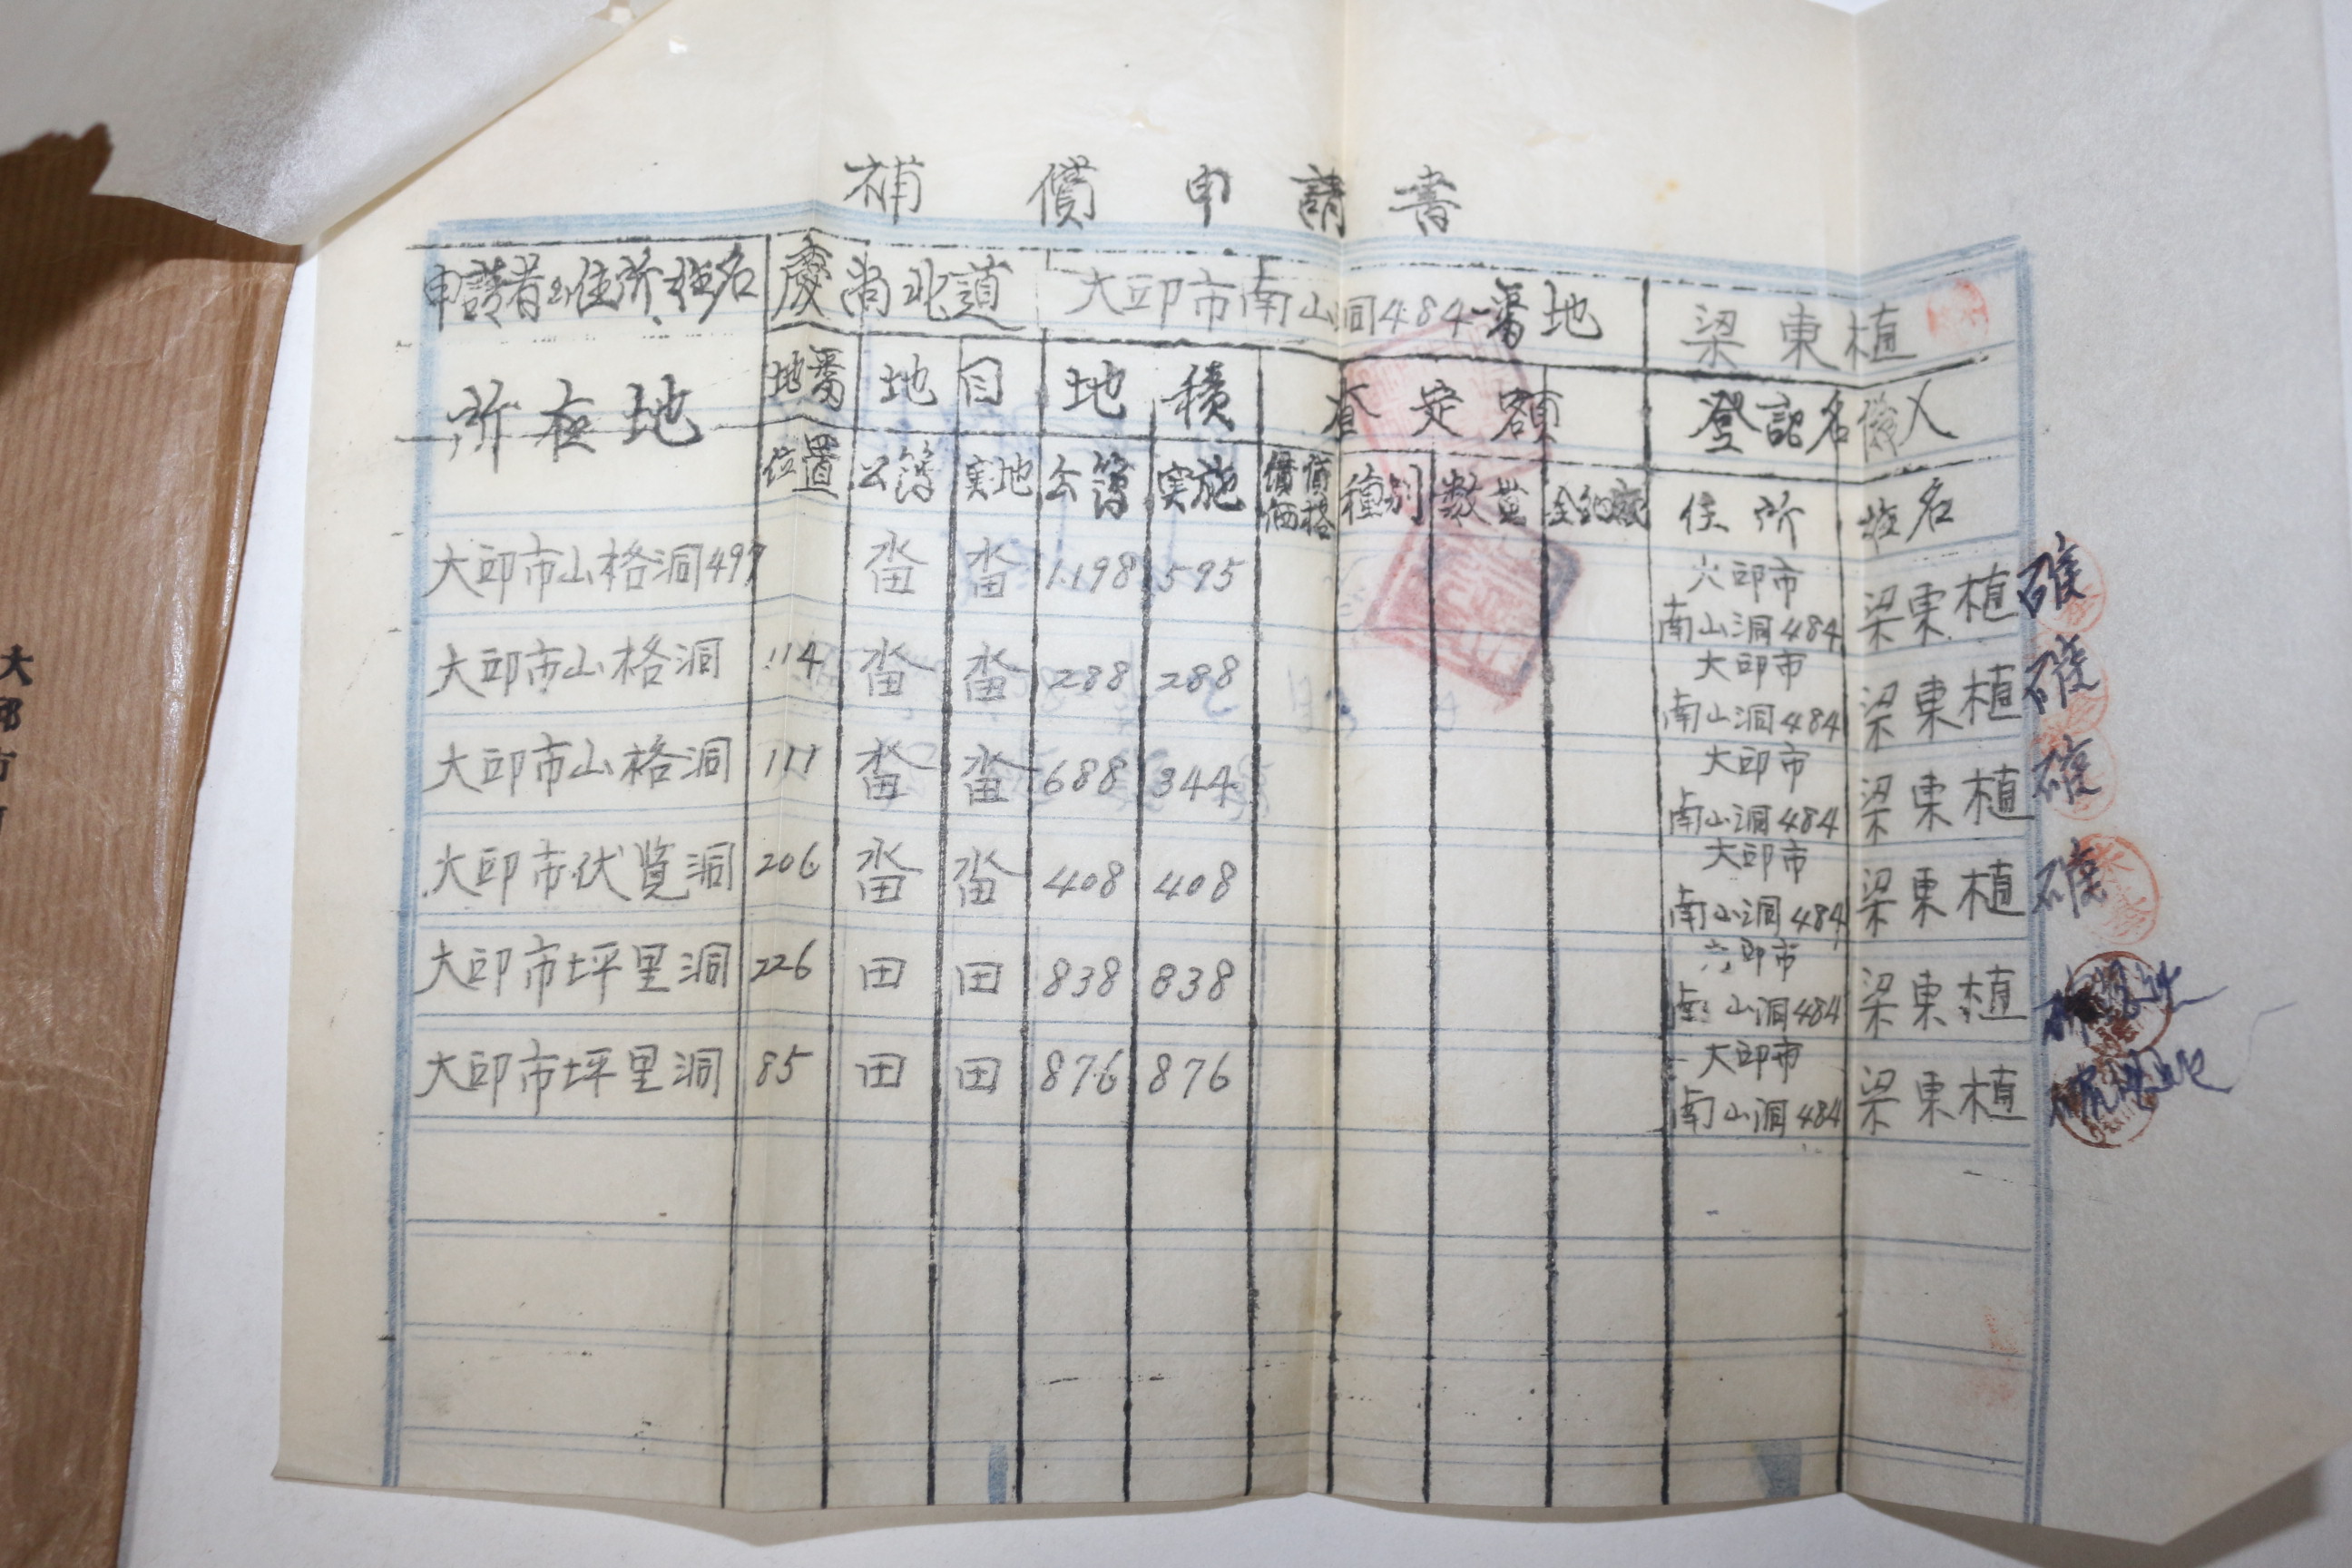 補償申請書
申請者의住所姓名 慶尚北道 大邱市南山洞484番地 梁東植
所在地 地番 地目 地積 査定額 登記名儀人
位置 公簿 実地 公簿 実施 価格 種別 数量 住所 姓名
大邱市山格洞497 畓 畓 1.198 595 大邱市 南山洞484 梁東植 確
大邱市山格洞 114 畓 畓 288 288 大邱市 南山洞484 梁東植 確
大邱市山格洞 111 畓 畓 688 344 大邱市 南山洞484 梁東植 確
大邱市伏覧洞 206 畓 畓 408 408 大邱市 南山洞484 梁東植 確
大邱市坪里洞 226 田 田 838 838 大邱市 南山洞484 梁東植
大邱市坪里洞 85 田 田 876 876 大邱市 南山洞484 梁東植
大
邱
市